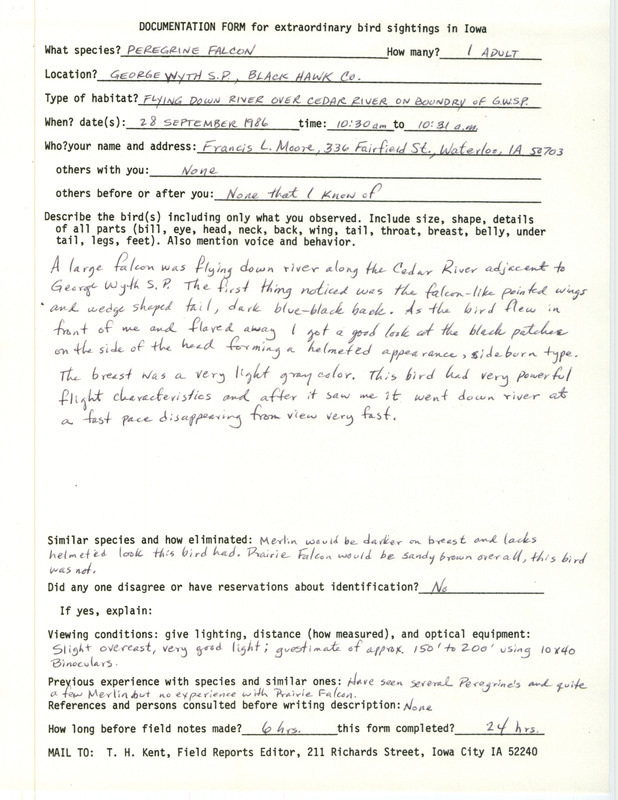 DOCUMENTATION FORM for extraordinary bird sightings in Iowa
What species? PEREGRINE FALCON How many? 1 ADULT
Location? GEORGE WYTH S.P., BLACK HAWK CO.
Type of habitat? FLYING DOWN RIVER OVER CEDAR RIVER ON BOUNDRY OF G.W.S.P.
When? date(s): 28 SEPTEMBER 1986 time: 10:30 am to 10:31 a.m.
Who?your name and address: Francis L. Moore, 336 Fairfield St., Waterloo, IA 50703
others with you: None
others before or after you: None that I know of
Describe the bird(s) including only what you observed. Include size, shape, details
of all parts (bill, eye, head, neck, back, wing, tail, throat, breast, belly, under
tail, legs, feet). Also mention voice and behavior.
A large falcon was flying down river along the Cedar River adjacent to
George Wyth S.P. The first thing noticed was the falcon-like pointed wings
and wedge shaped tail, dark blue-black back. As the bird flew in
front of me and flared away I got a good look at the black patches
on the side of the head forming a helmeted appearance, sideburn type.
The breast was a very light gray color. This bird had very powerful
flight characteristics and after it saw me it went down river at
a fast pace disappearing from view very fast.
Similar species and how eliminated: Merlin would be darker on breast and lacks
helmeted look this bird had. Prairie Falcon would be sandy brown overall, this bird
was not.
Did any one disagree or have reservations about identification? No
If yes, explain:
Viewing conditions: give lighting, distance (how measured), and optical equipment:
Slight overcast, very good light; guestimate of approx. 150' to 200' using 10x40
Binoculars.
Previous experience with species and similar ones: Have seen several Peregrine's and quite
a few Merlin but no experience with Prairie Falcon.
References and persons consulted before writing description: None
How long before field notes made? 6 hrs. this form completed? 24 hrs.
MAIL TO: T. H. Kent, Field Reports Editor, 211 Richards Street, Iowa City IA 52240